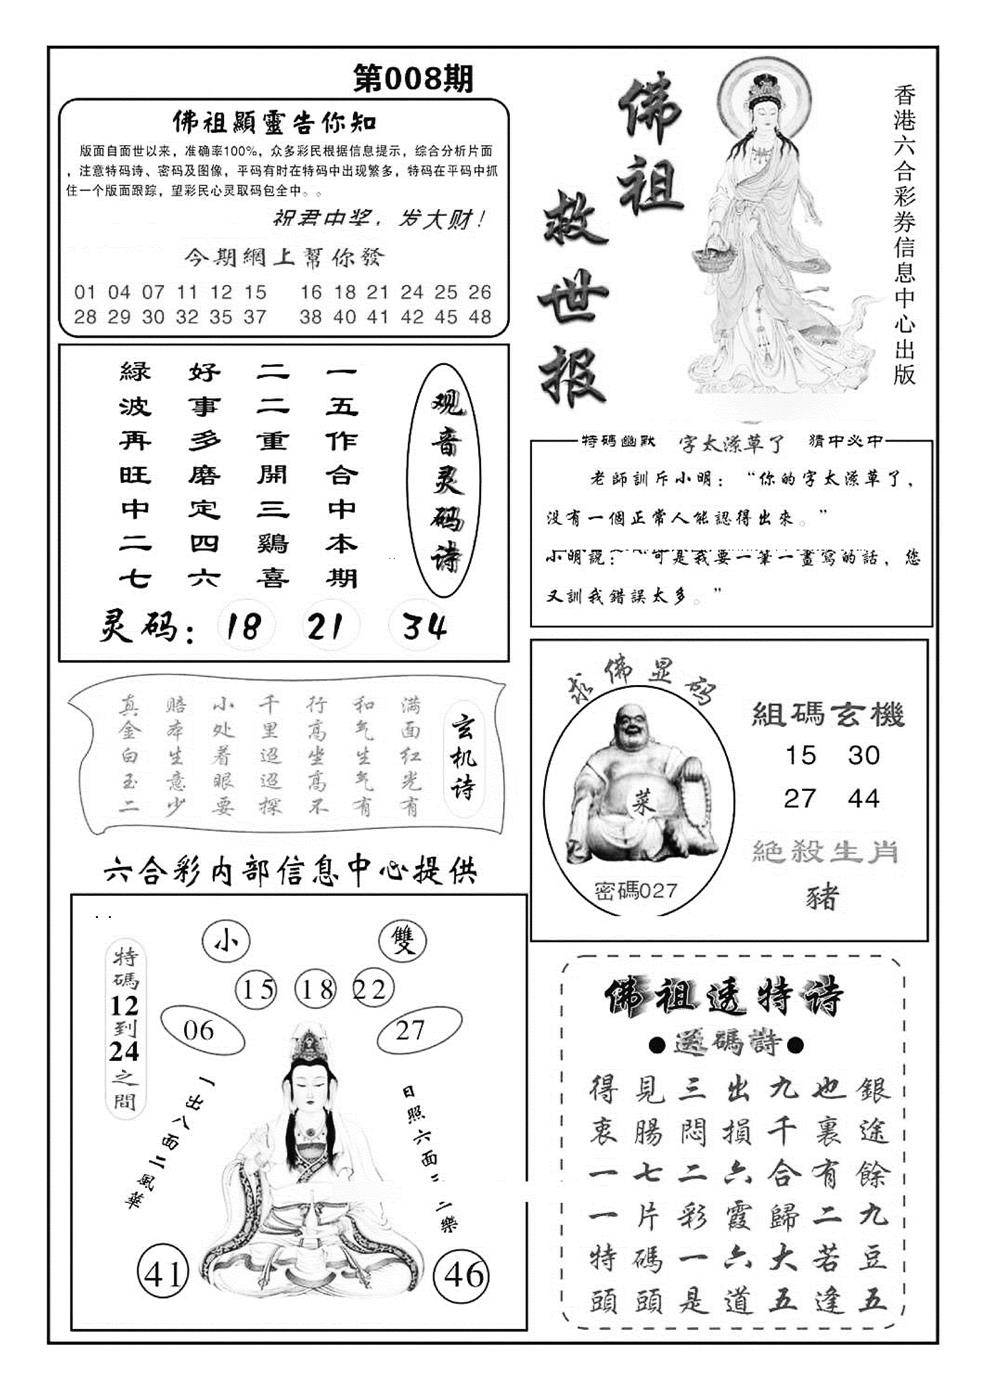 第008期
佛祖顯靈告你知
版面自面世以来，准确率100%，众多彩民根据信息提示，综合分析片面
，注意特码诗、密码及图像，平码有时在特码中出现繁多，特码在平码中抓
住一个版面跟踪，望彩民心灵取码包全中。。
祝君中奖，发大财！
今期網上幫你發
01 04 07 11 12 15 16 18 21 24 25 26
28 29 30 32 35 37 38 40 41 42 45 48
佛祖
救世报
香港六合彩券信息中心出版
观音灵码诗
一五作合中本期
二二重開三鷄喜
好事多磨定四六
緑波再旺中二七
灵码：18 21 34
特碼幽默 字太潦草了 猜中必中
老師訓斥小明：“你的字太潦草了，
没有一個正常人能認得出來。”
小明說：“可是我要一筆一畫寫的話，您
又訓我錯誤太多。”
玄机诗
满面红光有
和气生气有
行高坐高不
千里迢迢探
小处着眼要
赔本生意少
真金白玉二
六合彩内部信息中心提供
求佛显码
菜
密碼027
組碼玄機
15 30
27 44
絕殺生肖
豬
特碼12到24之間
小
雙
15 18 22
06
27
一出八面二風華
日照六面三二樂
41
46
佛祖透特诗
●送碼詩●
銀途餘九豆五
也裏有二若逢
九千合歸大五
出損六霞六道
三悶二彩一是
見腸七片碼頭
得衷一一特頭